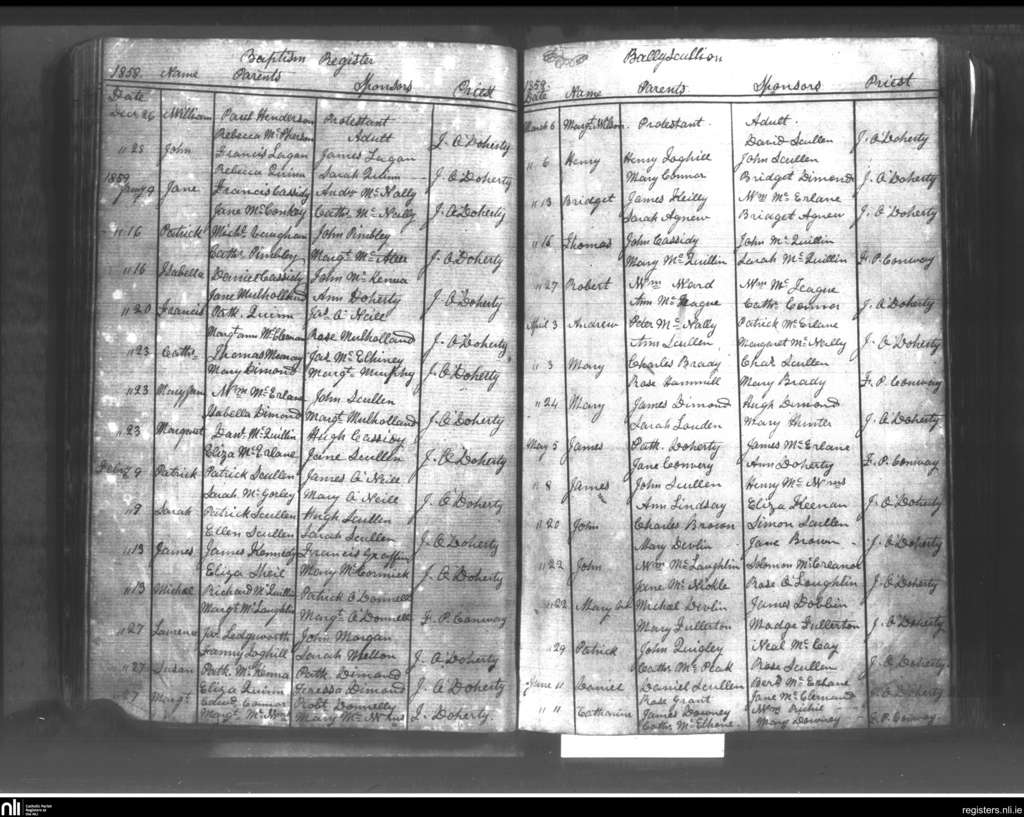 Baptism Register
1858 Name Parents Sponsors Priest
Date
Decr 26 William Paul Henderson Protestant
Rebecca McPherson Adult J. O'Doherty
" 28 John Francis Lagan James Lagan
Rebecca Quinn Sarah Quinn J. O'Doherty
1859
Jany 9 Jane Francis Cassidy Andw McNally
Jane McConkey Cathe McNally J. O'Doherty
" 16 Patrick Michl Vaughan John Pimbley
Cathe Pimbley Margt McAtee J. O'Doherty
" 16 Isabella Daniel Cassidy John McKenna
Jane Mulholland Ann Doherty J. O'Doherty
" 20 Francis Patk Quinn Jas O'Neill
Margt ann McClernan Rose Mulholland J. O'Doherty
" 23 Cathe Thomas Jas McElhiney
Mary Dimond Margt Murphy J. O'Doherty
" 23 Mary Jane Wm McErlane John Scullen
Isabella Dimond Margt Mulholland J. O'Doherty
" 23 Margaret Danl McQuillin Hugh Cassidy
Eliza McErlane Jane Scullen J. O'Doherty
Feby 9 Patrick Patrick Scullen James O'Neill
Sarah McGorley Mary O'Neill J. O'Doherty
" 9 Sarah Patrick Scullen Hugh Scullen
Ellen Scullen Sarah Scullen J. O'Doherty
" 13 James James Kennedy Francis Graffin
Eliza Sheil Mary McCormick J. O'Doherty
" 13 Michal Richard McQuillin Patrick O'Donnell
Margt McLaughlin Margt O'Donnell F. P. Conway
" 27 Laurence Jas Ledgworth John Morgan
Fanny Loghill Sarah Melton J. O'Doherty
" 27 Susan Patk McKenna Patk Dimond
Eliza Quinn Teressa Dimond J. O'Doherty
" 27 Margt Edwd Connor Robt Donnelly
Margt Mary J. Doherty.
Ballyscullion
1859 Name Parents Sponsors Priest
Date
March 6 Margt Wilson Protestant Adult
David Scullen J. O'Doherty
" 6 Henry Henry Loghill John Scullen
Mary Connor Bridget Dimond J. O'Doherty
" 13 Bridget James Keilly Wm McErlane
Sarah Agnew Bridget Agnew J. O'Doherty
" 16 Thomas John Cassidy John McQuillin
Mary McQuillin Sarah McQuillin F. P. Conway
" 27 Robert Wm Ward Wm McTeague
Ann McTeague Cathe Connor J. O'Doherty
April 3 Andrew Peter McNally Patrick McErlane
Ann Scullen Margaret McNally J. O'Doherty
" 3 Mary Charles Brady Chas Scullen
Rose Hammill Mary Brady F. P. Conway
" 24 Mary James Dimond Hugh Dimond
Sarah Louden Mary Hunter J. O'Doherty
May 5 James Patk Doherty James McErlane
Jane Convery Ann Doherty F. P. Conway
" 8 James John Scullen Henry
Ann Lindsay Eliza Keenan J. O'Doherty
" 20 John Charles Brown Simon Scullen
Mary Devlin Jane Brown J. O'Doherty
" 22 John Wm McLaughlin Solomon McErlane
Jane McNickle Rose O'Loughlin J. O'Doherty
" 22 Mary Michal Devlin James Dobbin
Mary Fullerton Madge Fullerton J. O'Doherty
" 29 Patrick John Quigley Neal McCay
Cathe McPlak Rose Scullen J. O'Doherty
June 11 Daniel Daniel Scullen Berd McErlane
Rose Grant Jane McClernand J. O'Doherty
" 11 Catharine James Downey Wm Richie
Cathe McElhone Mary Downey F. P. Conway
nli Catholic Parish
Registers at
the NLI
registers.nli.ie